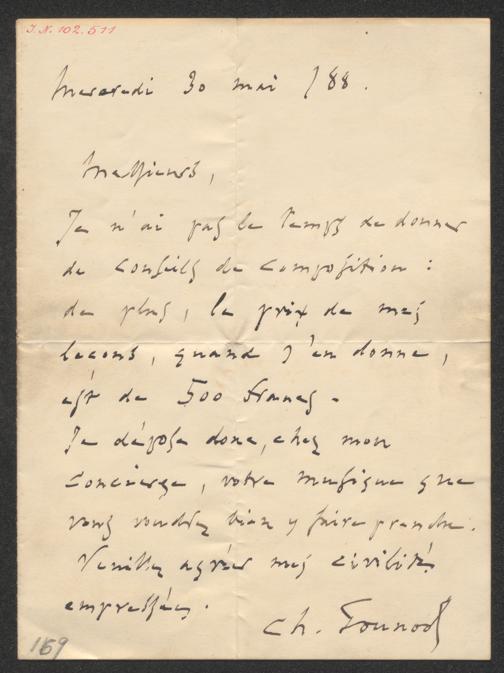 I.N. 102.511
Mercredi 30 mai /88.
Messieurs,
Je n'ai pas le temps de donner
de conseils de composition :
de plus, le prix de mes
leçons, quand j'en donne,
est de 500 francs.
Je dépose donc, chez mon
concierge, votre musique que
vous voudrez bien y faire prendre.
Veuillez agréer mes civilités
empressées.
Ch. Gounod
169